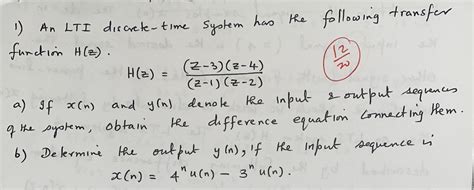 1) An LTI discrete-time system has the following transfer
function H(z).
12/20
H(z) = (z-3)(z-4)/(z-1)(z-2)
a) If x(n) and y(n) denote the input & output sequences
of the system, obtain the difference equation connecting them.
b) Determine the output y(n), if the input sequence is
x(n) = 4ⁿ u(n) - 3ⁿ u(n).